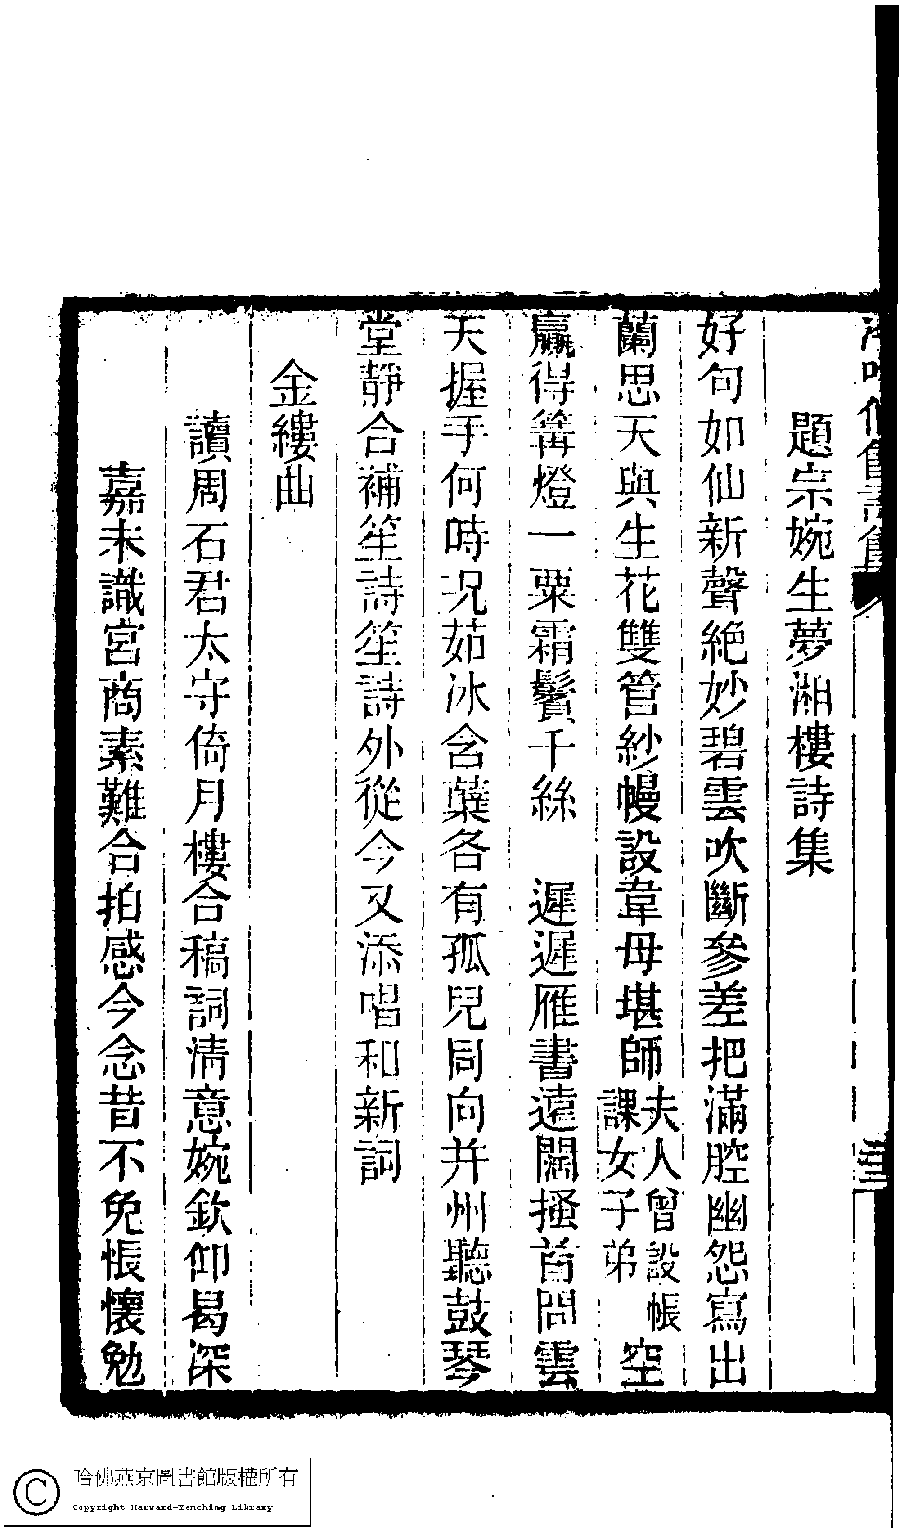 題宗婉生夢湘樓詩集
好句如仙新聲絶妙碧雲吹斷參差把滿腔幽怨寫出
蘭思天與生花雙管紗幔設韋母堪師夫人曾設帳課女子弟空
贏得篝燈一粟霜鬢千絲　遲遲雁書遠闊搔首問雲
天握手何時况茹冰含蘗各有孤兒同向并州聽鼓琴
堂靜合補笙詩笙詩外從今又添唱和新詞
金縷曲
讀周石君太守倚月樓合稿詞淸意婉欽仰曷深
嘉未識宮商素難合拍感今念昔不免悵懷勉
三
哈佛燕京圖書館版權所有
Copyright Harvard-Yenching Library